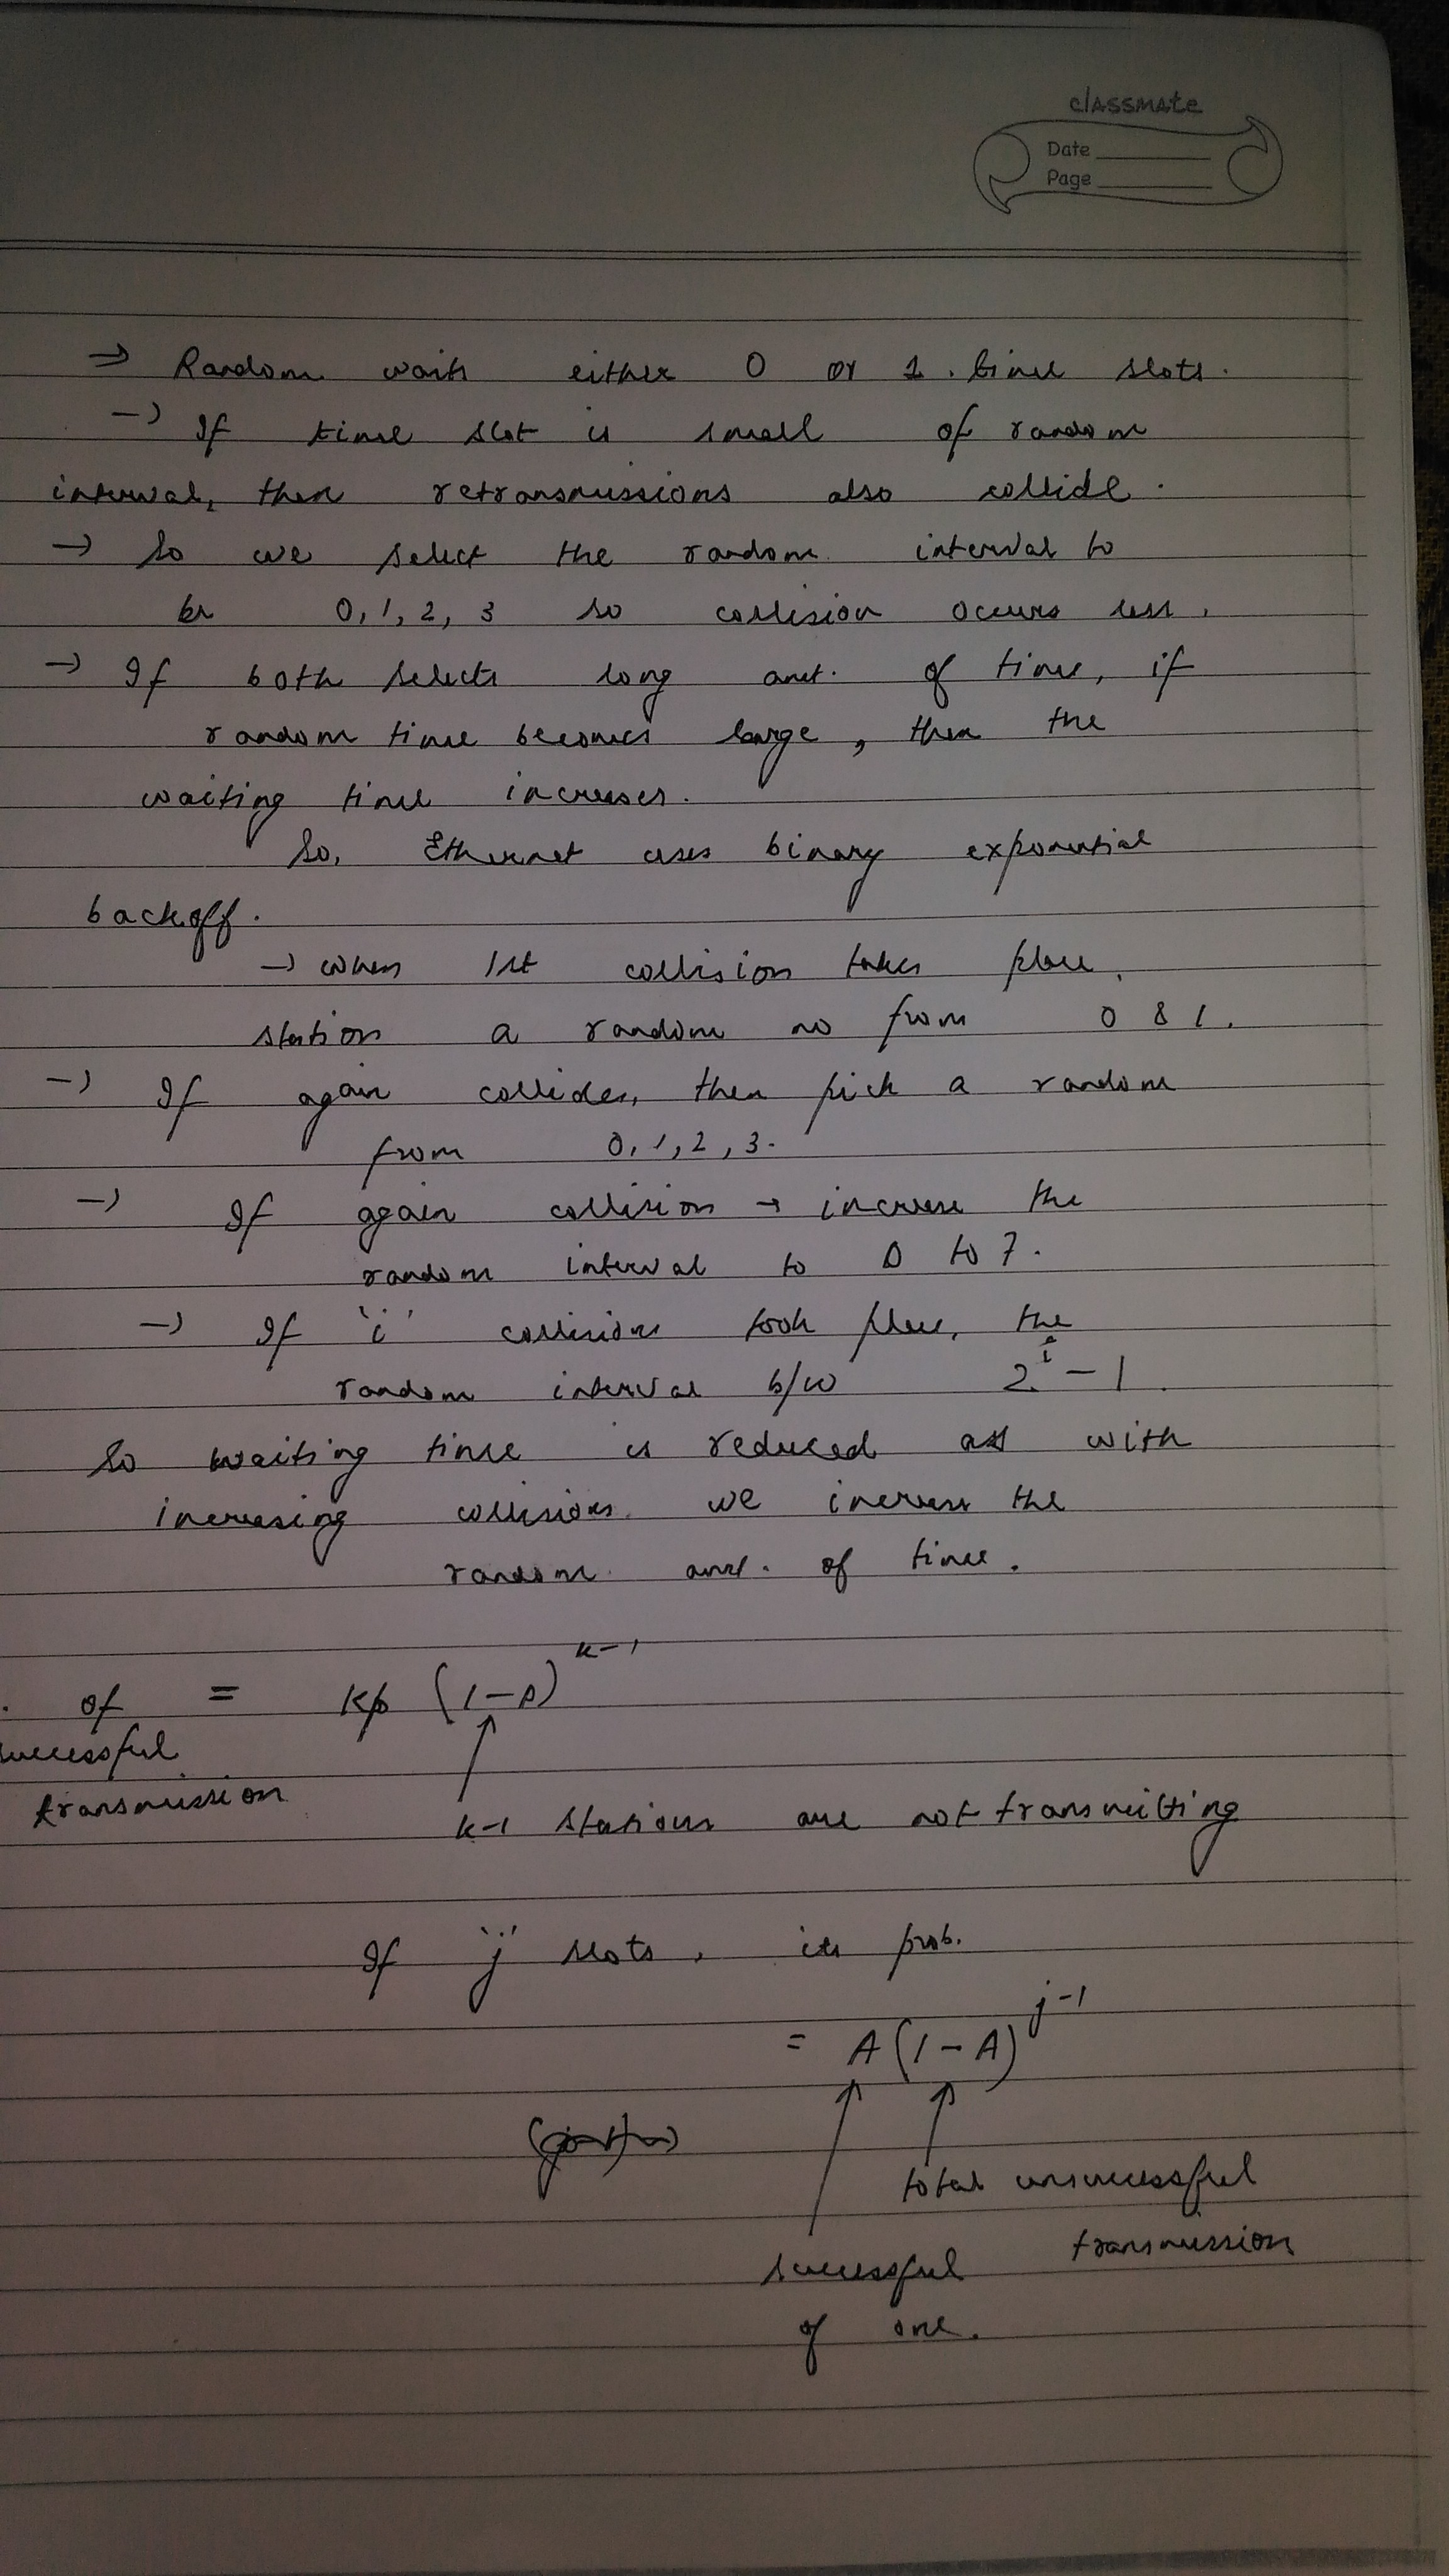 classmate
Date
Page
⇒ Random waits either 0 or 1. time slots.
→ If time slot is small of random
interval, then retransmissions also collide.
→ So we select the random interval to
be 0, 1, 2, 3 so collision occurs less.
→ If both selects long amt. of time, if
random time becomes large, then the
waiting time increases.
So, Ethernet uses binary exponential
backoff.
→ when 1st collision takes place,
station a random no from 0 & 1.
→ If again collides, then pick a random
from 0, 1, 2, 3.
→ If again collision → increase the
random interval to 0 to 7.
→ If 'i' collisions took place, the
random interval b/w 2^i - 1.
So waiting time is reduced as with
increasing collisions we increase the
random amt. of time.
. of = kp (1-p)^{k-1}
successful
transmission
k-1 stations are not transmitting
If 'j' slots, its prob.
= A(1-A)^{j-1}
total unsuccessful
transmission
successful
of one.